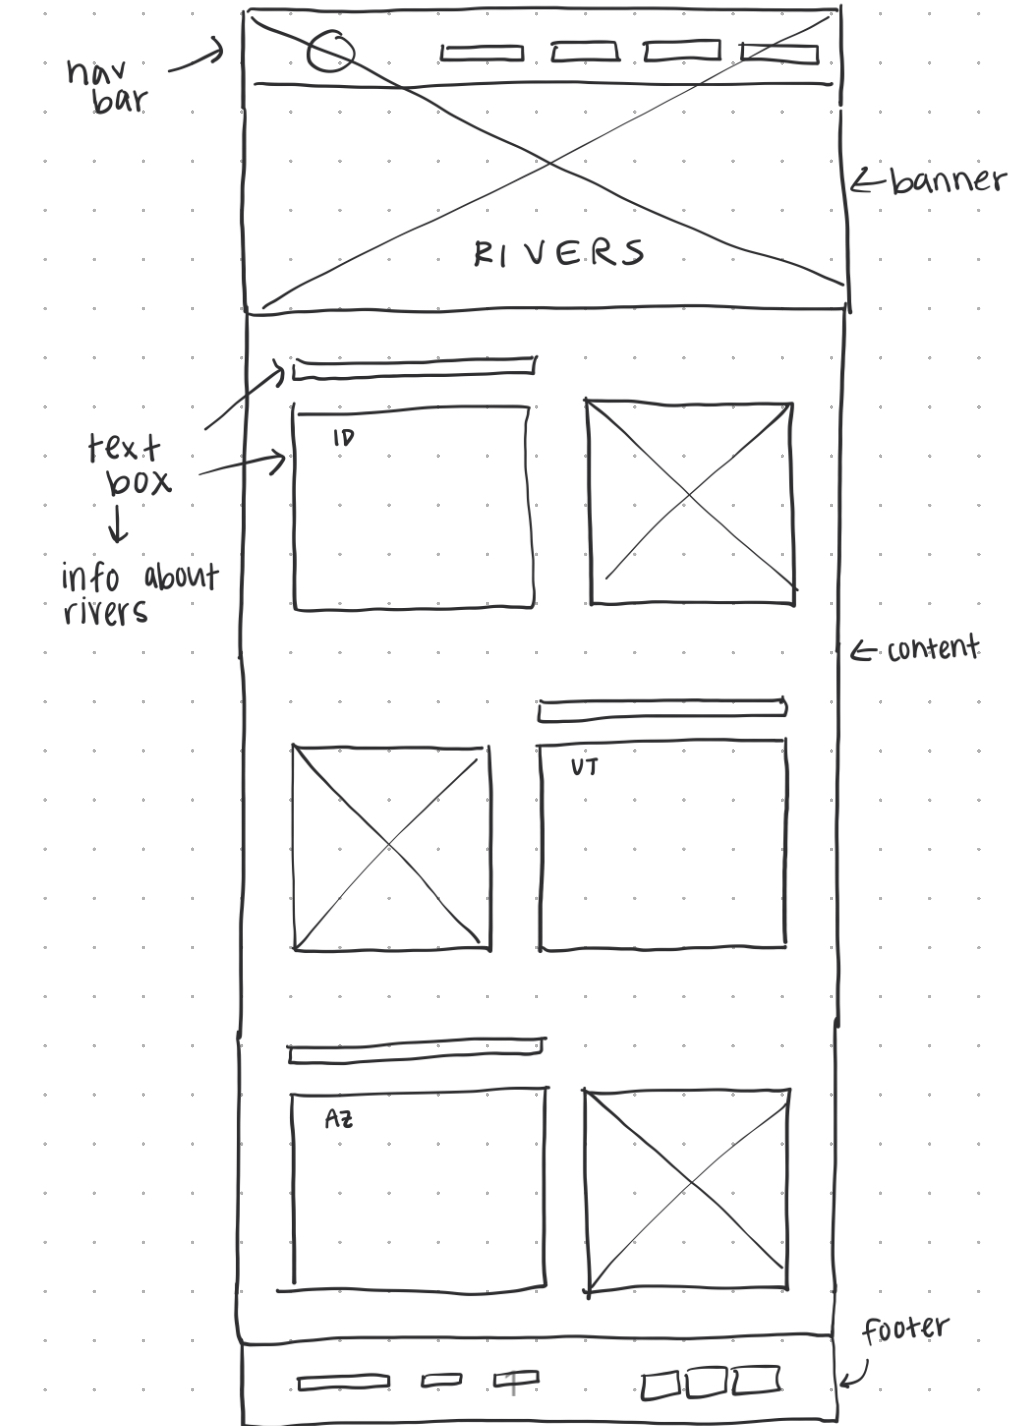 nav
bar
banner
RIVERS
text
box
info about
rivers
ID
content
UT
AZ
footer